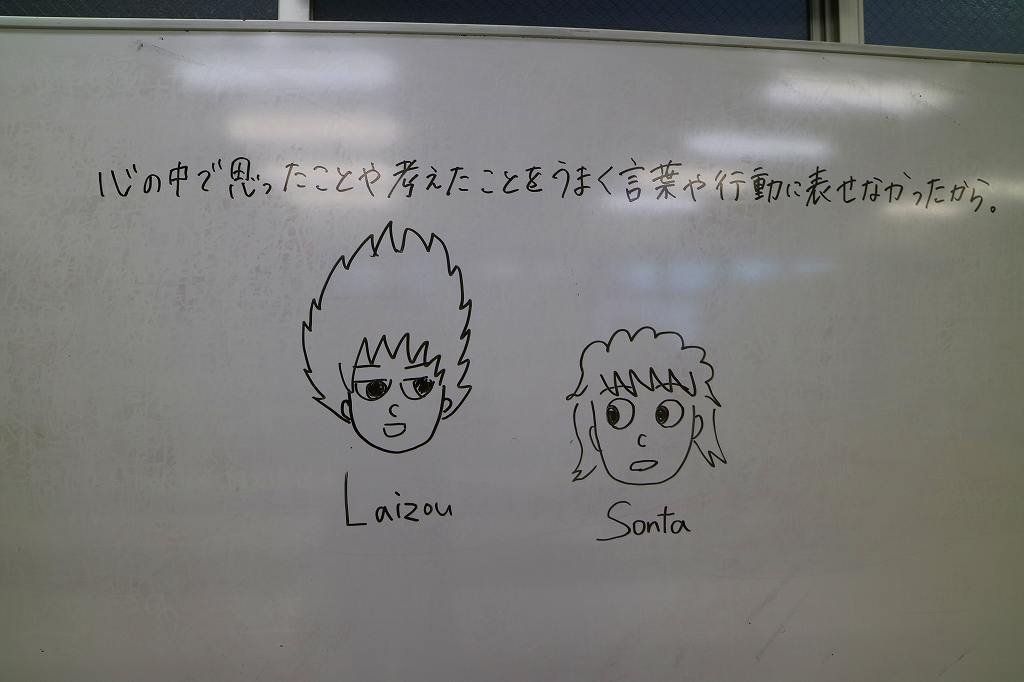 心の中で思ったことや考えたことをうまく言葉や行動に表せなかったから。
Laizou
Sonta